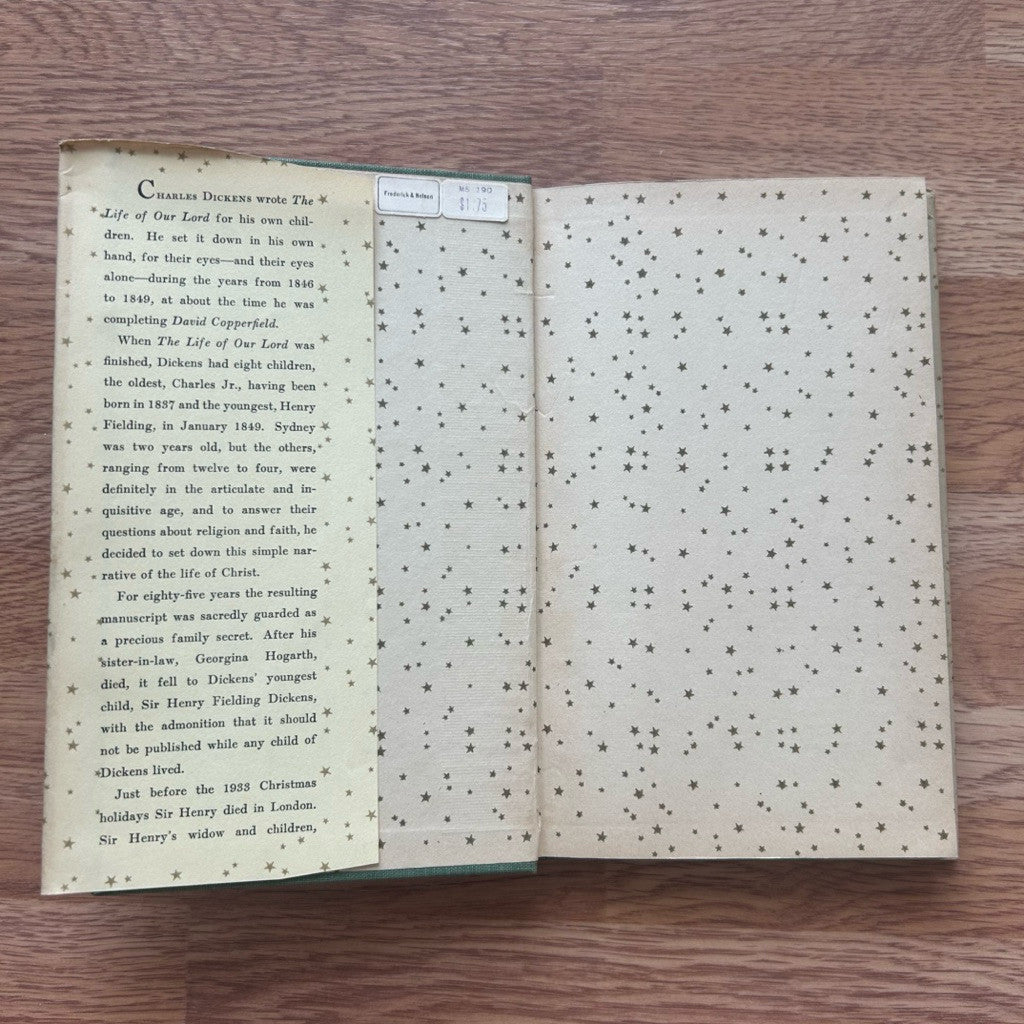 CHARLES DICKENS wrote The
Life of Our Lord for his own chil-
dren. He set it down in his own
hand, for their eyes—and their eyes
alone—during the years from 1846
to 1849, at about the time he was
completing David Copperfield.
When The Life of Our Lord was
finished, Dickens had eight children,
the oldest, Charles Jr., having been
born in 1837 and the youngest, Henry
Fielding, in January 1849. Sydney
was two years old, but the others,
ranging from twelve to four, were
definitely in the articulate and in-
quisitive age, and to answer their
questions about religion and faith, he
decided to set down this simple nar-
rative of the life of Christ.
For eighty-five years the resulting
manuscript was sacredly guarded as
a precious family secret. After his
sister-in-law, Georgina Hogarth,
died, it fell to Dickens' youngest
child, Sir Henry Fielding Dickens,
with the admonition that it should
not be published while any child of
Dickens lived.
Just before the 1933 Christmas
holidays Sir Henry died in London.
Sir Henry's widow and children,
Frederick & Nelson
$1.75